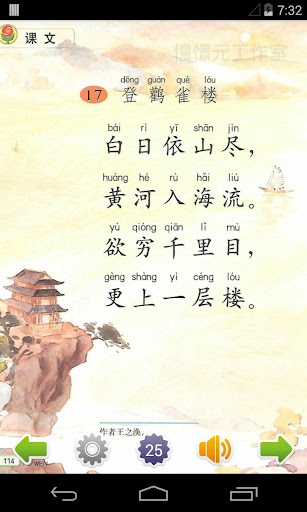 7:32
课文
憧憬元工作室
dēng guàn què lóu
17 登鹳雀楼
bái rì yī shān jìn
白日依山尽，
huáng hé rù hǎi liú
黄河入海流。
yù qióng qiān lǐ mù
欲穷千里目，
gèng shàng yì céng lóu
更上一层楼。
作者王之涣。
114
WEN
25